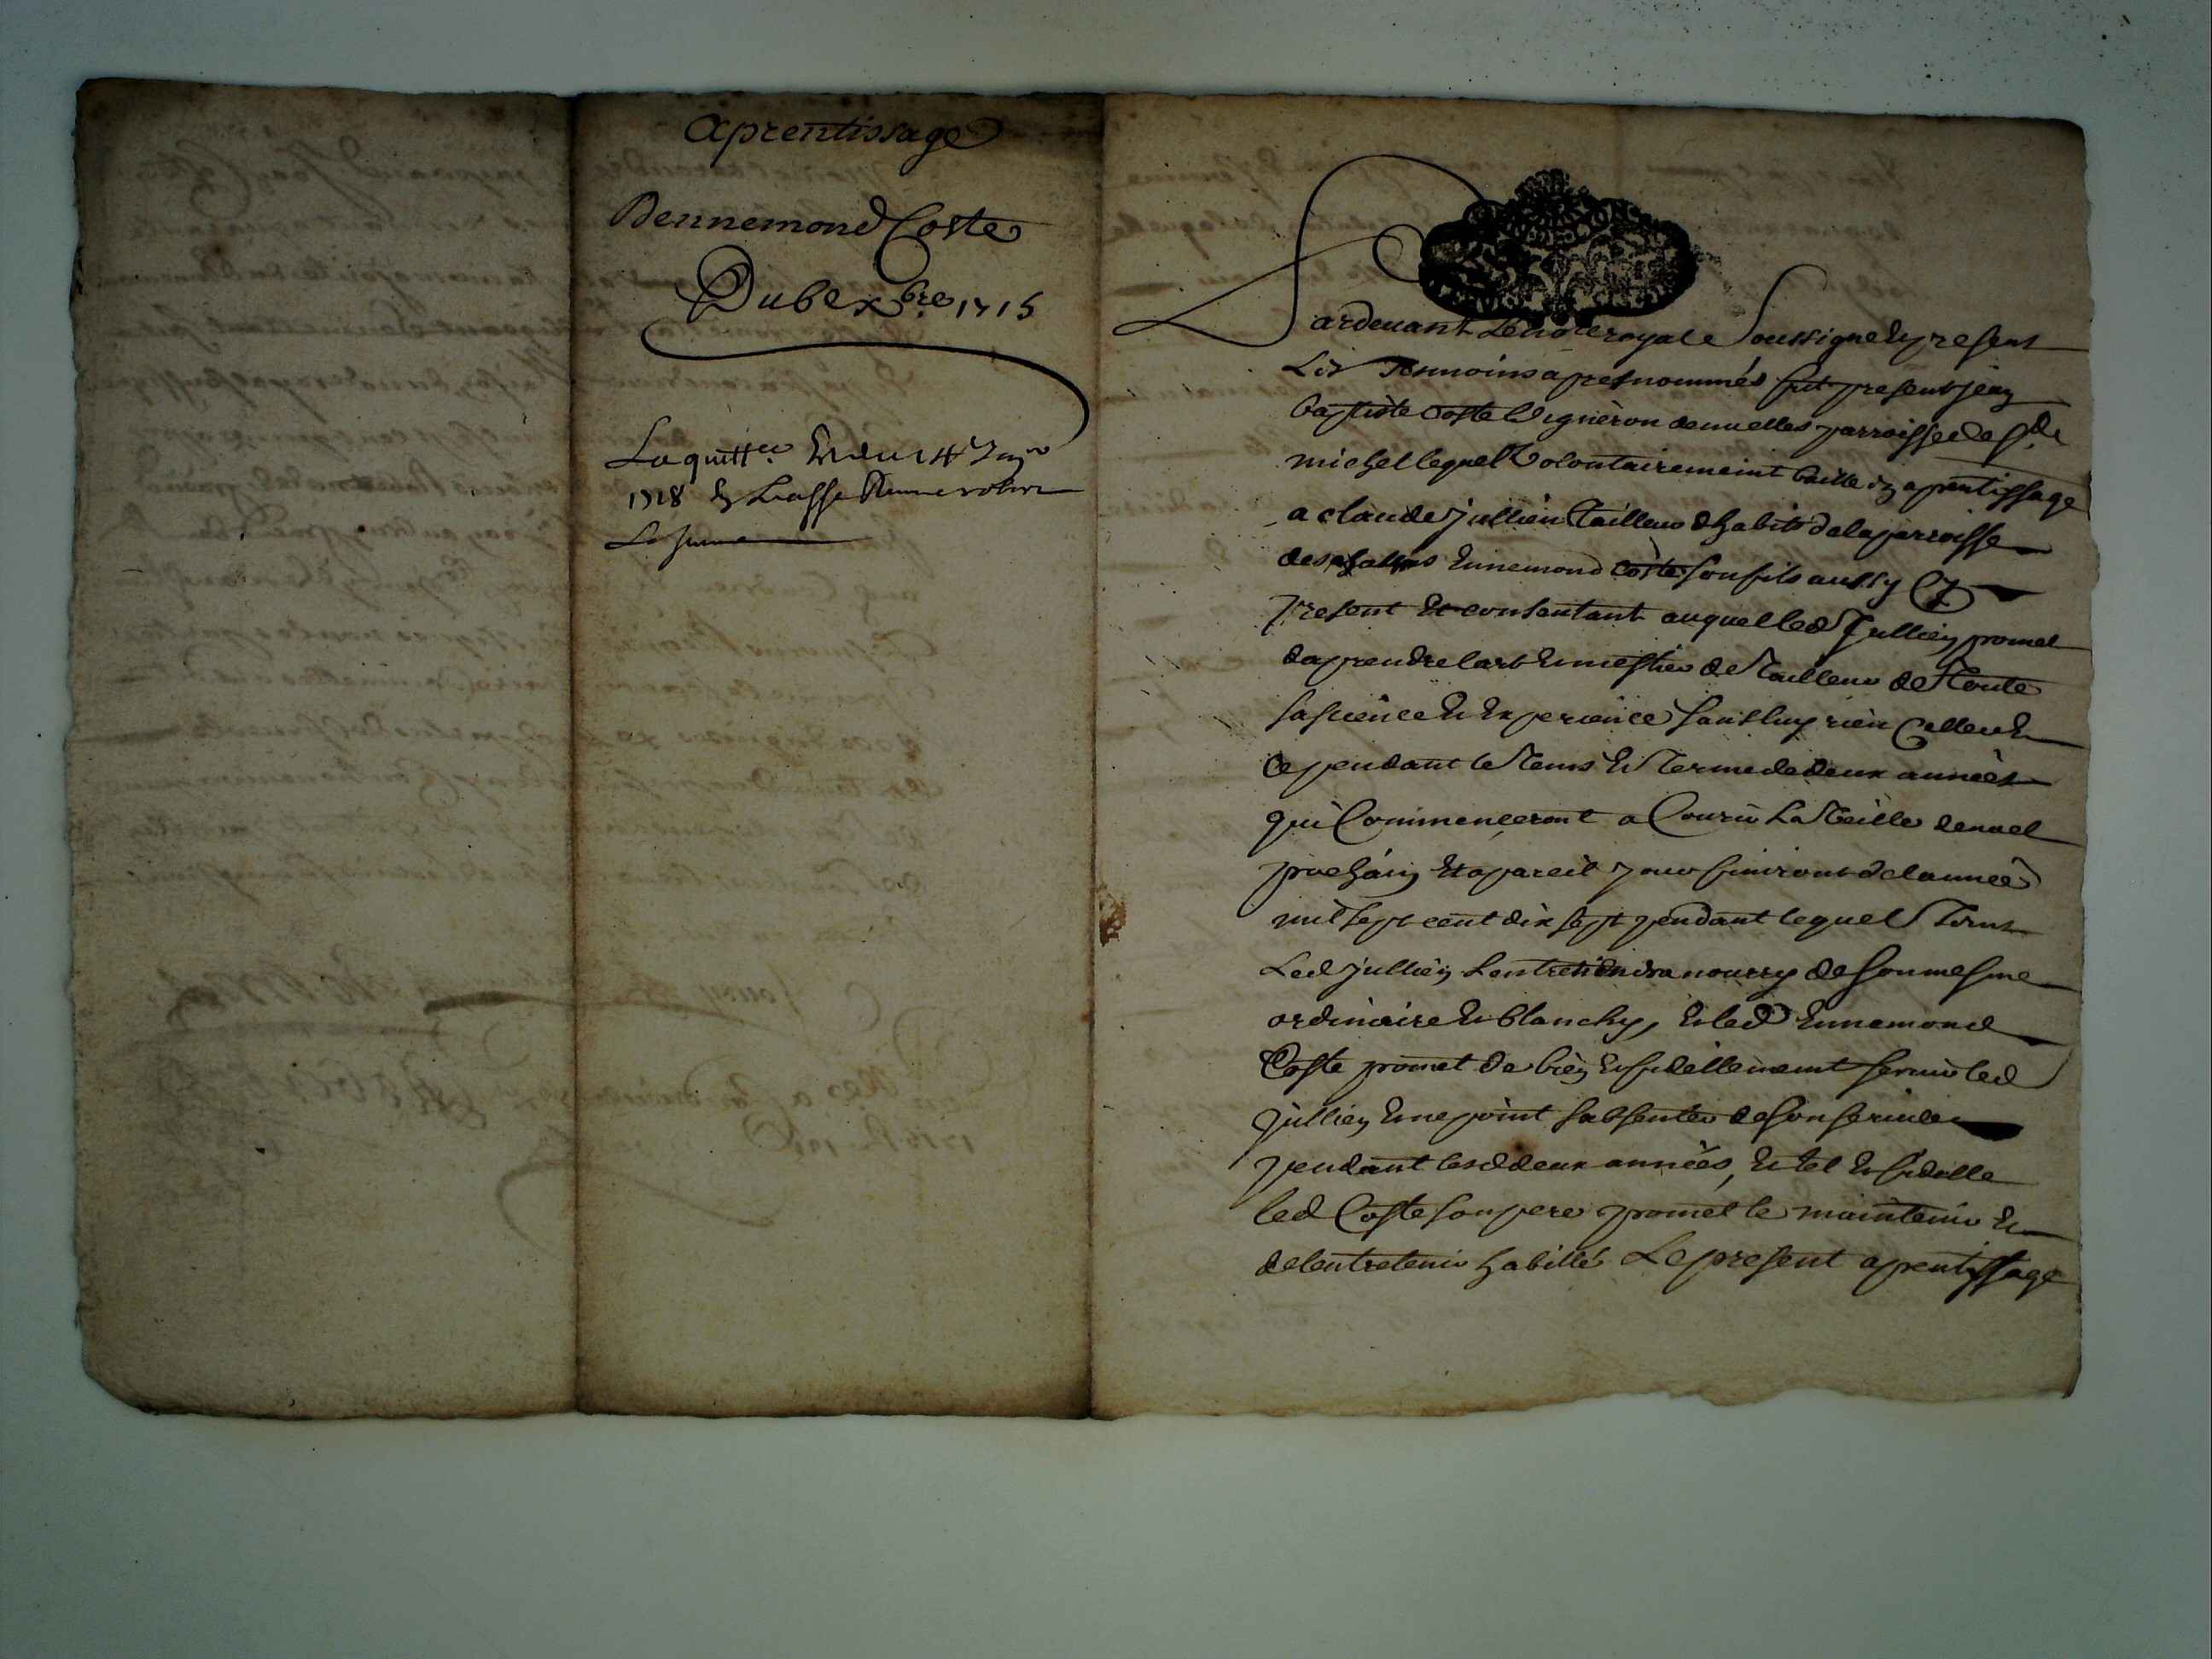 Aprentissage
Dennemond Coste
Du 6e xbre 1715
La quittce Est du
1718 Liasse
La sienne
Pardevant Le notre royal Soussigne Et presents
Les Temoins apres nommés fut present jean
baptiste Coste Vigneron de nuelles parroisse de St
michel lequel Volontairement baille en aprentissage
a claude jullien Tailleur dhabits de la parroisse
des Ennemond Coste son fils aussy Cy
present Et consentant auquel led Jullien promet
daprendre lart Et mestier de Tailleur de Toute
sa science Et Experience sans luy rien Celler Et
Ce pendant le Tems Et Terme de deux années
qui Commenceront a Courir La Veille de noel
prochain Et a pareil jour finiront de lannée
mil sept cent dix sept pendant lequel Tems
Led jullien Lentretiendra nourry de son mesme
ordinaire Et blanchy, Et led Ennemond
Coste promet de bien Et fidellement servir led
jullien Et ne point sabsenter de son service
pendant lesd deux années, Et tel Et fidelle
led Coste son pere promet le maintenir Et
de lentretenir habillé Le present aprentissage